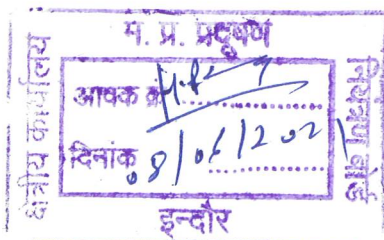 म. प्र. प्रदूषण
क्षेत्रीय कार्यालय
आवक क्र
दिनांक 08/06/202
नियंत्रण बोर्ड
इन्दौर